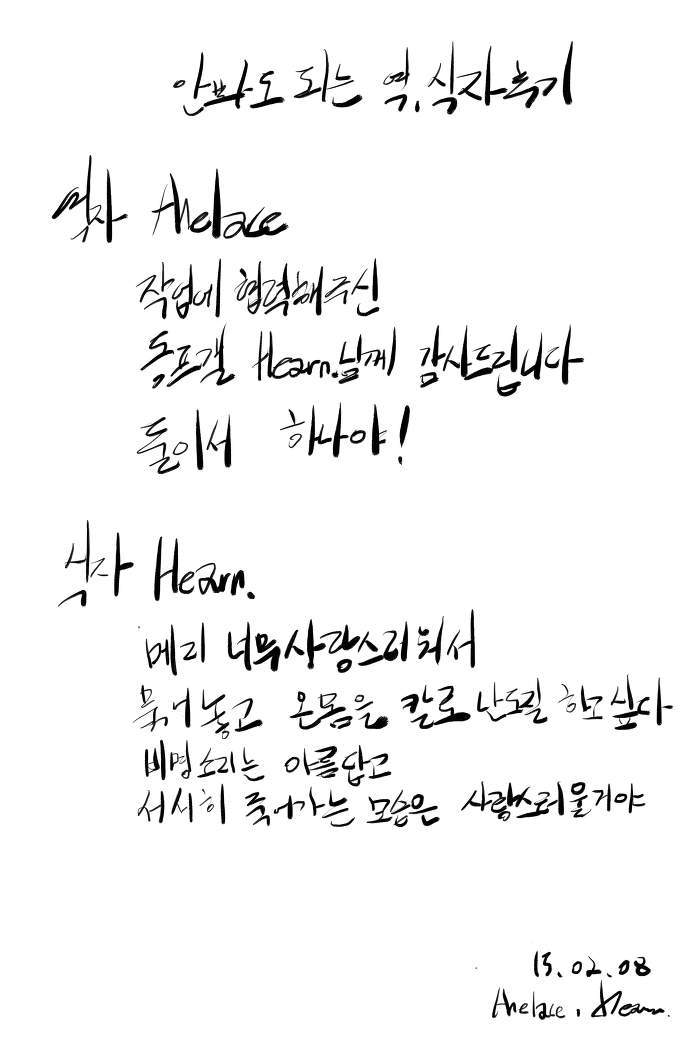 안봐도 되는 역,식자후기
역자 Anelace
작업에 협력해주신
동프갤 Hearn.님께 감사드립니다
둘이서 하나야!
식자 Hearn.
메리 너무사랑스러워서
묶어놓고 온몸을 칼로 난도질 하고 싶다
비명소리는 아름답고
서서히 죽어가는 모습은 사랑스러울거야
15.02.08
Anelace, Hearn.